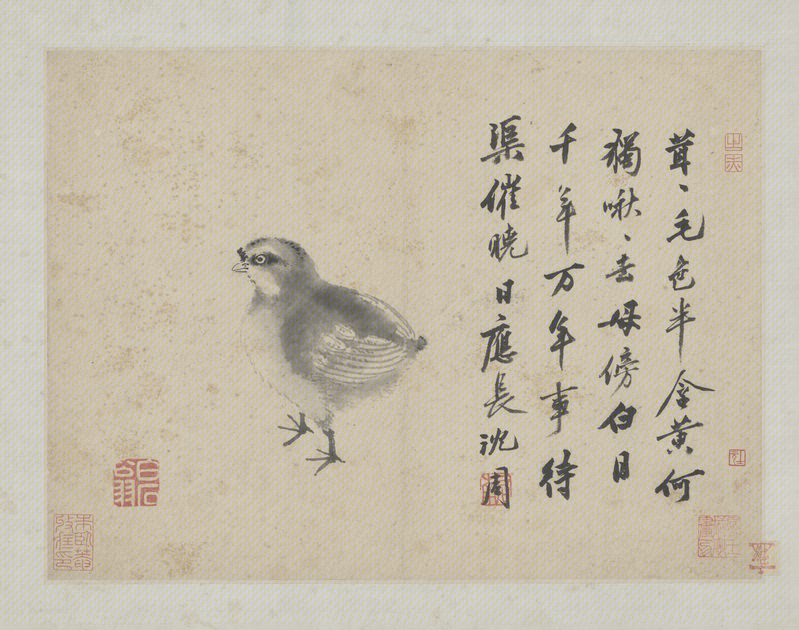 茸、毛色半含黄何
獨啾、去母傍白日
千年万年事待
渠催曉日應長沈周
白石翁